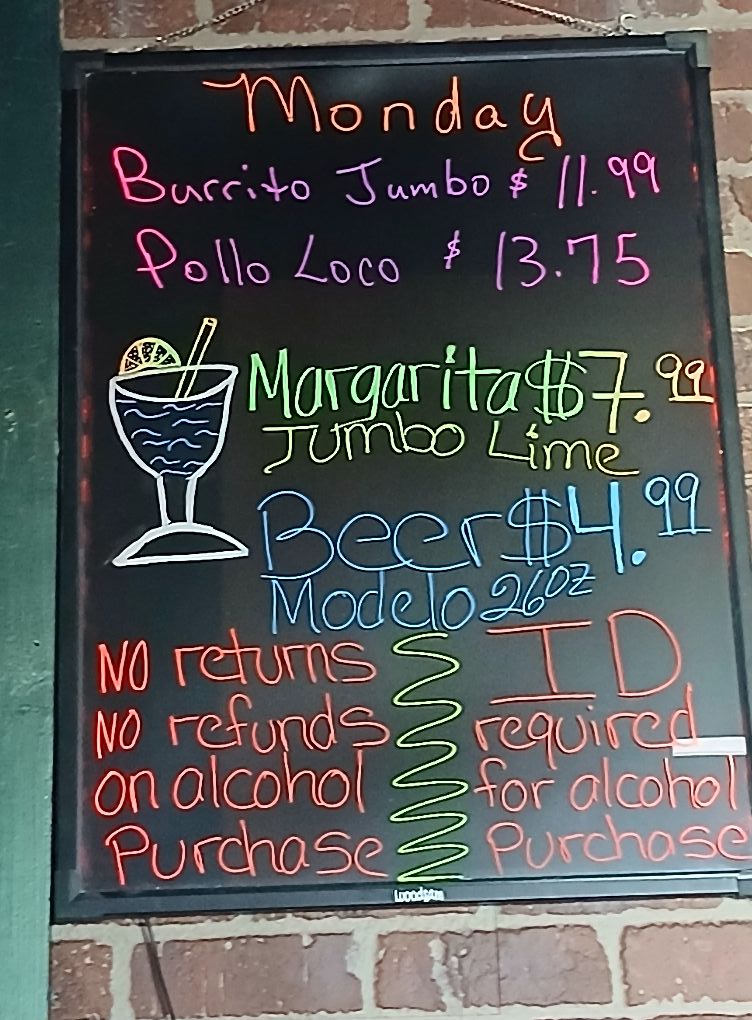 Monday
Burrito Jumbo $ 11.99
Pollo Loco $ 13.75
Margarita $7.99
Jumbo Lime
Beer $4.99
Modelo 26oz
NO returns
NO refunds
on alcohol
Purchase
ID
required
for alcohol
Purchase